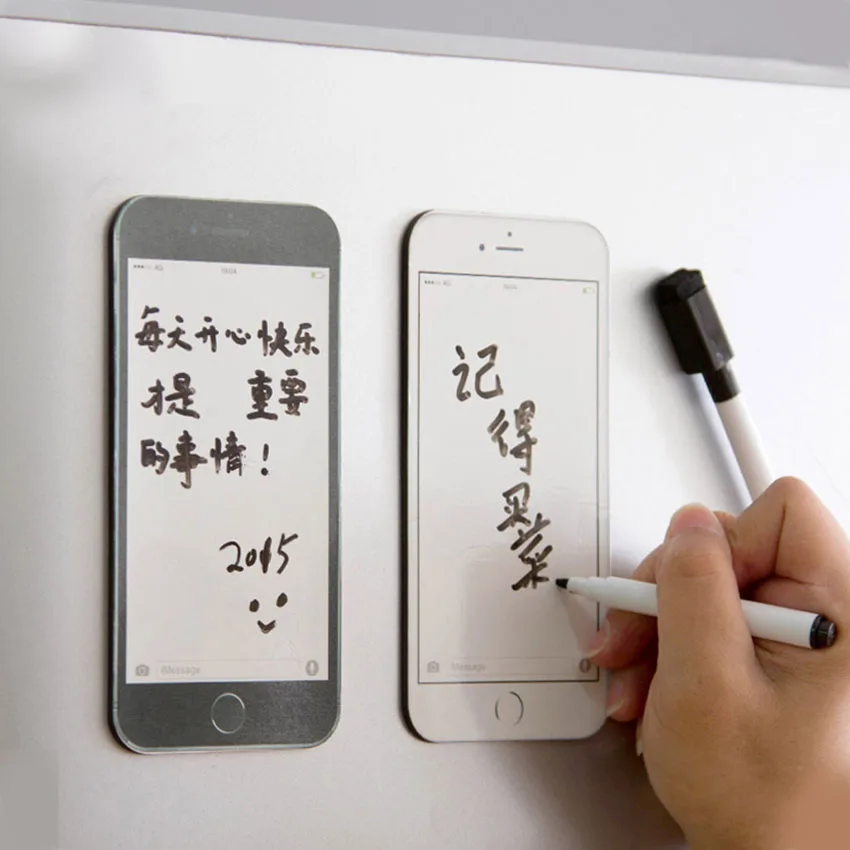 每天开心快乐
才是 重要
的事情！
2015
iMessage
记
得
买
菜
iMessage